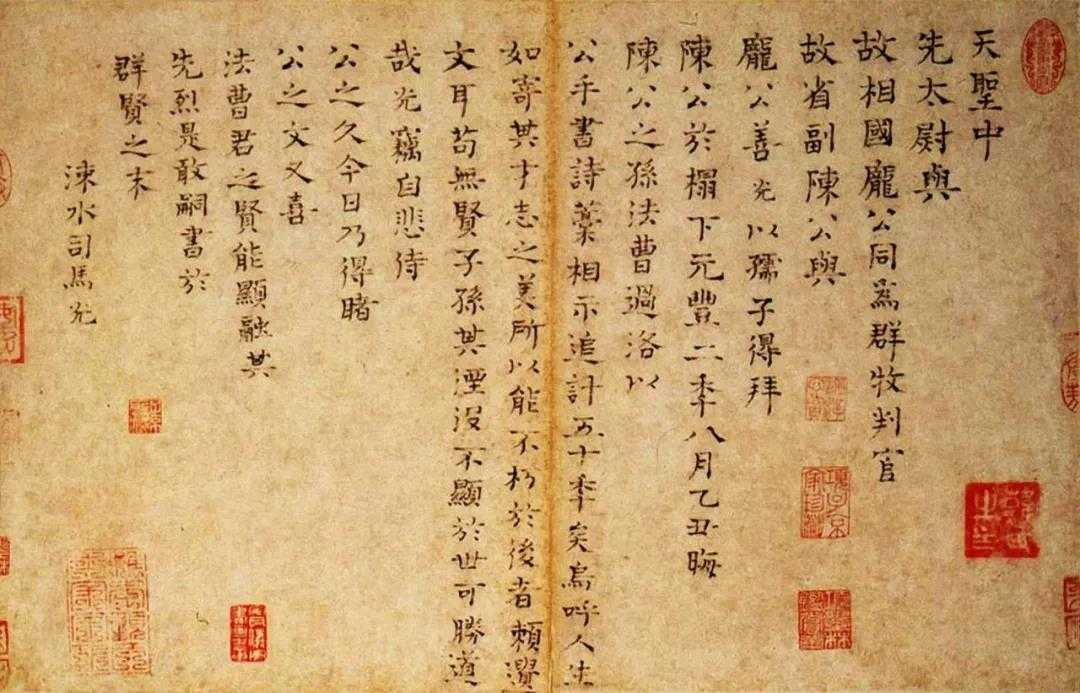 天聖中
先太尉與
故相國龐公同爲群牧判官
故省副陳公與
龐公善光以孺子得拜
陳公於榻下元豐二秊八月乙丑晦
陳公之孫法曹過洛以
公手書詩藁相示追計五十秊矣烏呼人生
如寄其才志之美所以能不朽於後者賴遺
文耳苟無賢子孫其湮沒不顯於世可勝道
哉光竊自悲侍
公之久今日乃得睹
公之文又喜
法曹君之賢能顯融其
先烈是敢嗣書於
群賢之末
涑水司馬光
項子京家珍藏